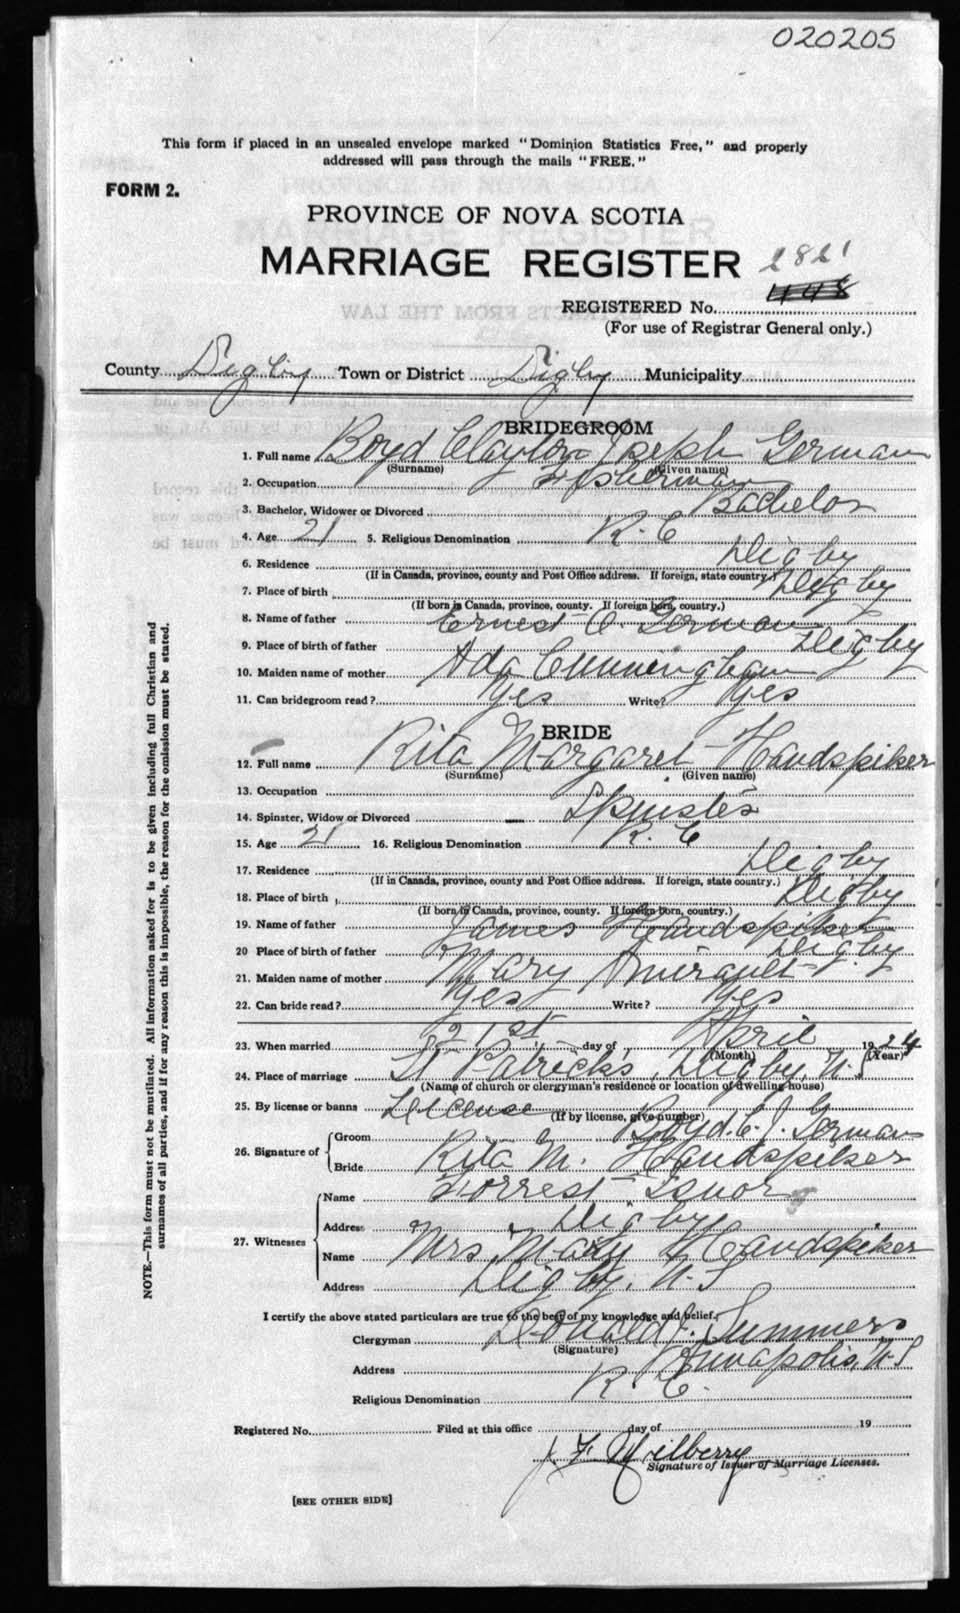 020205
This form if placed in an unsealed envelope marked "Dominion Statistics Free," and properly
addressed will pass through the mails "FREE."
FORM 2.
PROVINCE OF NOVA SCOTIA
MARRIAGE REGISTER 2821
REGISTERED No. 1148
(For use of Registrar General only.)
County Digby Town or District Digby Municipality
BRIDEGROOM
1. Full name Boyd Clayton Joseph German
(Surname) (Given name)
2. Occupation Fisherman
3. Bachelor, Widower or Divorced Bachelor
4. Age 21 5. Religious Denomination R. C
6. Residence Digby
(If in Canada, province, county and Post Office address. If foreign, state country.)
7. Place of birth Digby
(If born in Canada, province, county. If foreign born, country.)
8. Name of father Ernest C. German
9. Place of birth of father Digby
10. Maiden name of mother Ada Cunningham
11. Can bridegroom read? Yes Write? Yes
BRIDE
12. Full name Rita Margaret Handspiker
(Surname) (Given name)
13. Occupation
14. Spinster, Widow or Divorced Spinster
15. Age 21 16. Religious Denomination R. C
17. Residence Digby
(If in Canada, province, county and Post Office address. If foreign, state country.)
18. Place of birth Digby
(If born in Canada, province, county. If foreign born, country.)
19. Name of father James Handspiker
20 Place of birth of father Digby
21. Maiden name of mother Mary Amirault
22. Can bride read? Yes Write? Yes
23. When married 21st day of April 1924
(Month) (Year)
24. Place of marriage St Patrick's, Digby, N.S
(Name of church or clergyman's residence or location of dwelling house)
25. By license or banns License
(If by license, give number)
26. Signature of Groom Boyd. C. J. German
Bride Rita M. Handspiker
27. Witnesses Name Forrest
Address Digby
Name Mrs Mary Handspiker
Address Digby, N. S
I certify the above stated particulars are true to the best of my knowledge and belief.
Clergyman Donald J. Summers
(Signature)
Address Annapolis, N S
Religious Denomination R. C.
Registered No. Filed at this office day of 19
J F Milberry
Signature of Issuer of Marriage Licenses.
[SEE OTHER SIDE]
NOTE.—This form must not be mutilated. All information asked for is to be given including full Christian and
surnames of all parties, and if for any reason this is impossible, the reason for the omission must be stated.